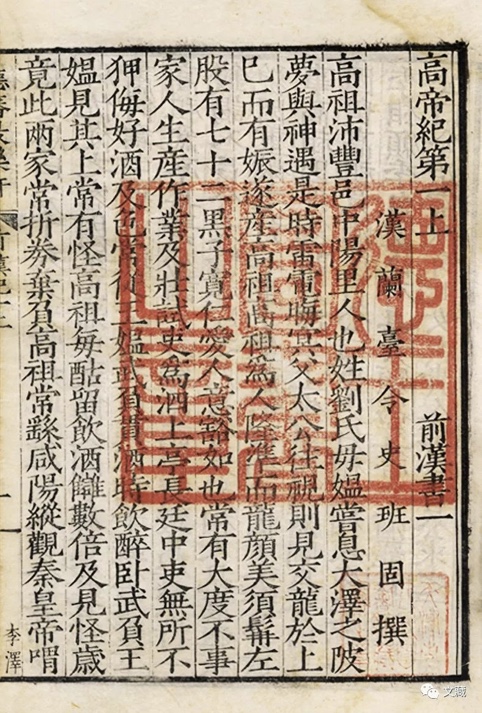 高帝紀第一上　前漢書一
漢蘭臺令史班固撰
高祖沛豐邑中陽里人也姓劉氏母媼嘗息大澤之陂
夢與神遇是時雷電晦冥父太公往視則見交龍於上
已而有娠遂產高祖高祖為人隆準而龍顏美須髯左
股有七十二黑子寬仁愛人意豁如也常有大度不事
家人生產作業及壯試吏為泗上亭長廷中吏無所不
狎侮好酒及色常從王媼武負貰酒時飲醉臥武負王
媼見其上常有怪高祖每酤留飲酒讎數倍及見怪歲
竟此兩家常折券棄負高祖常繇咸陽縱觀秦皇帝喟
李澤
文藏